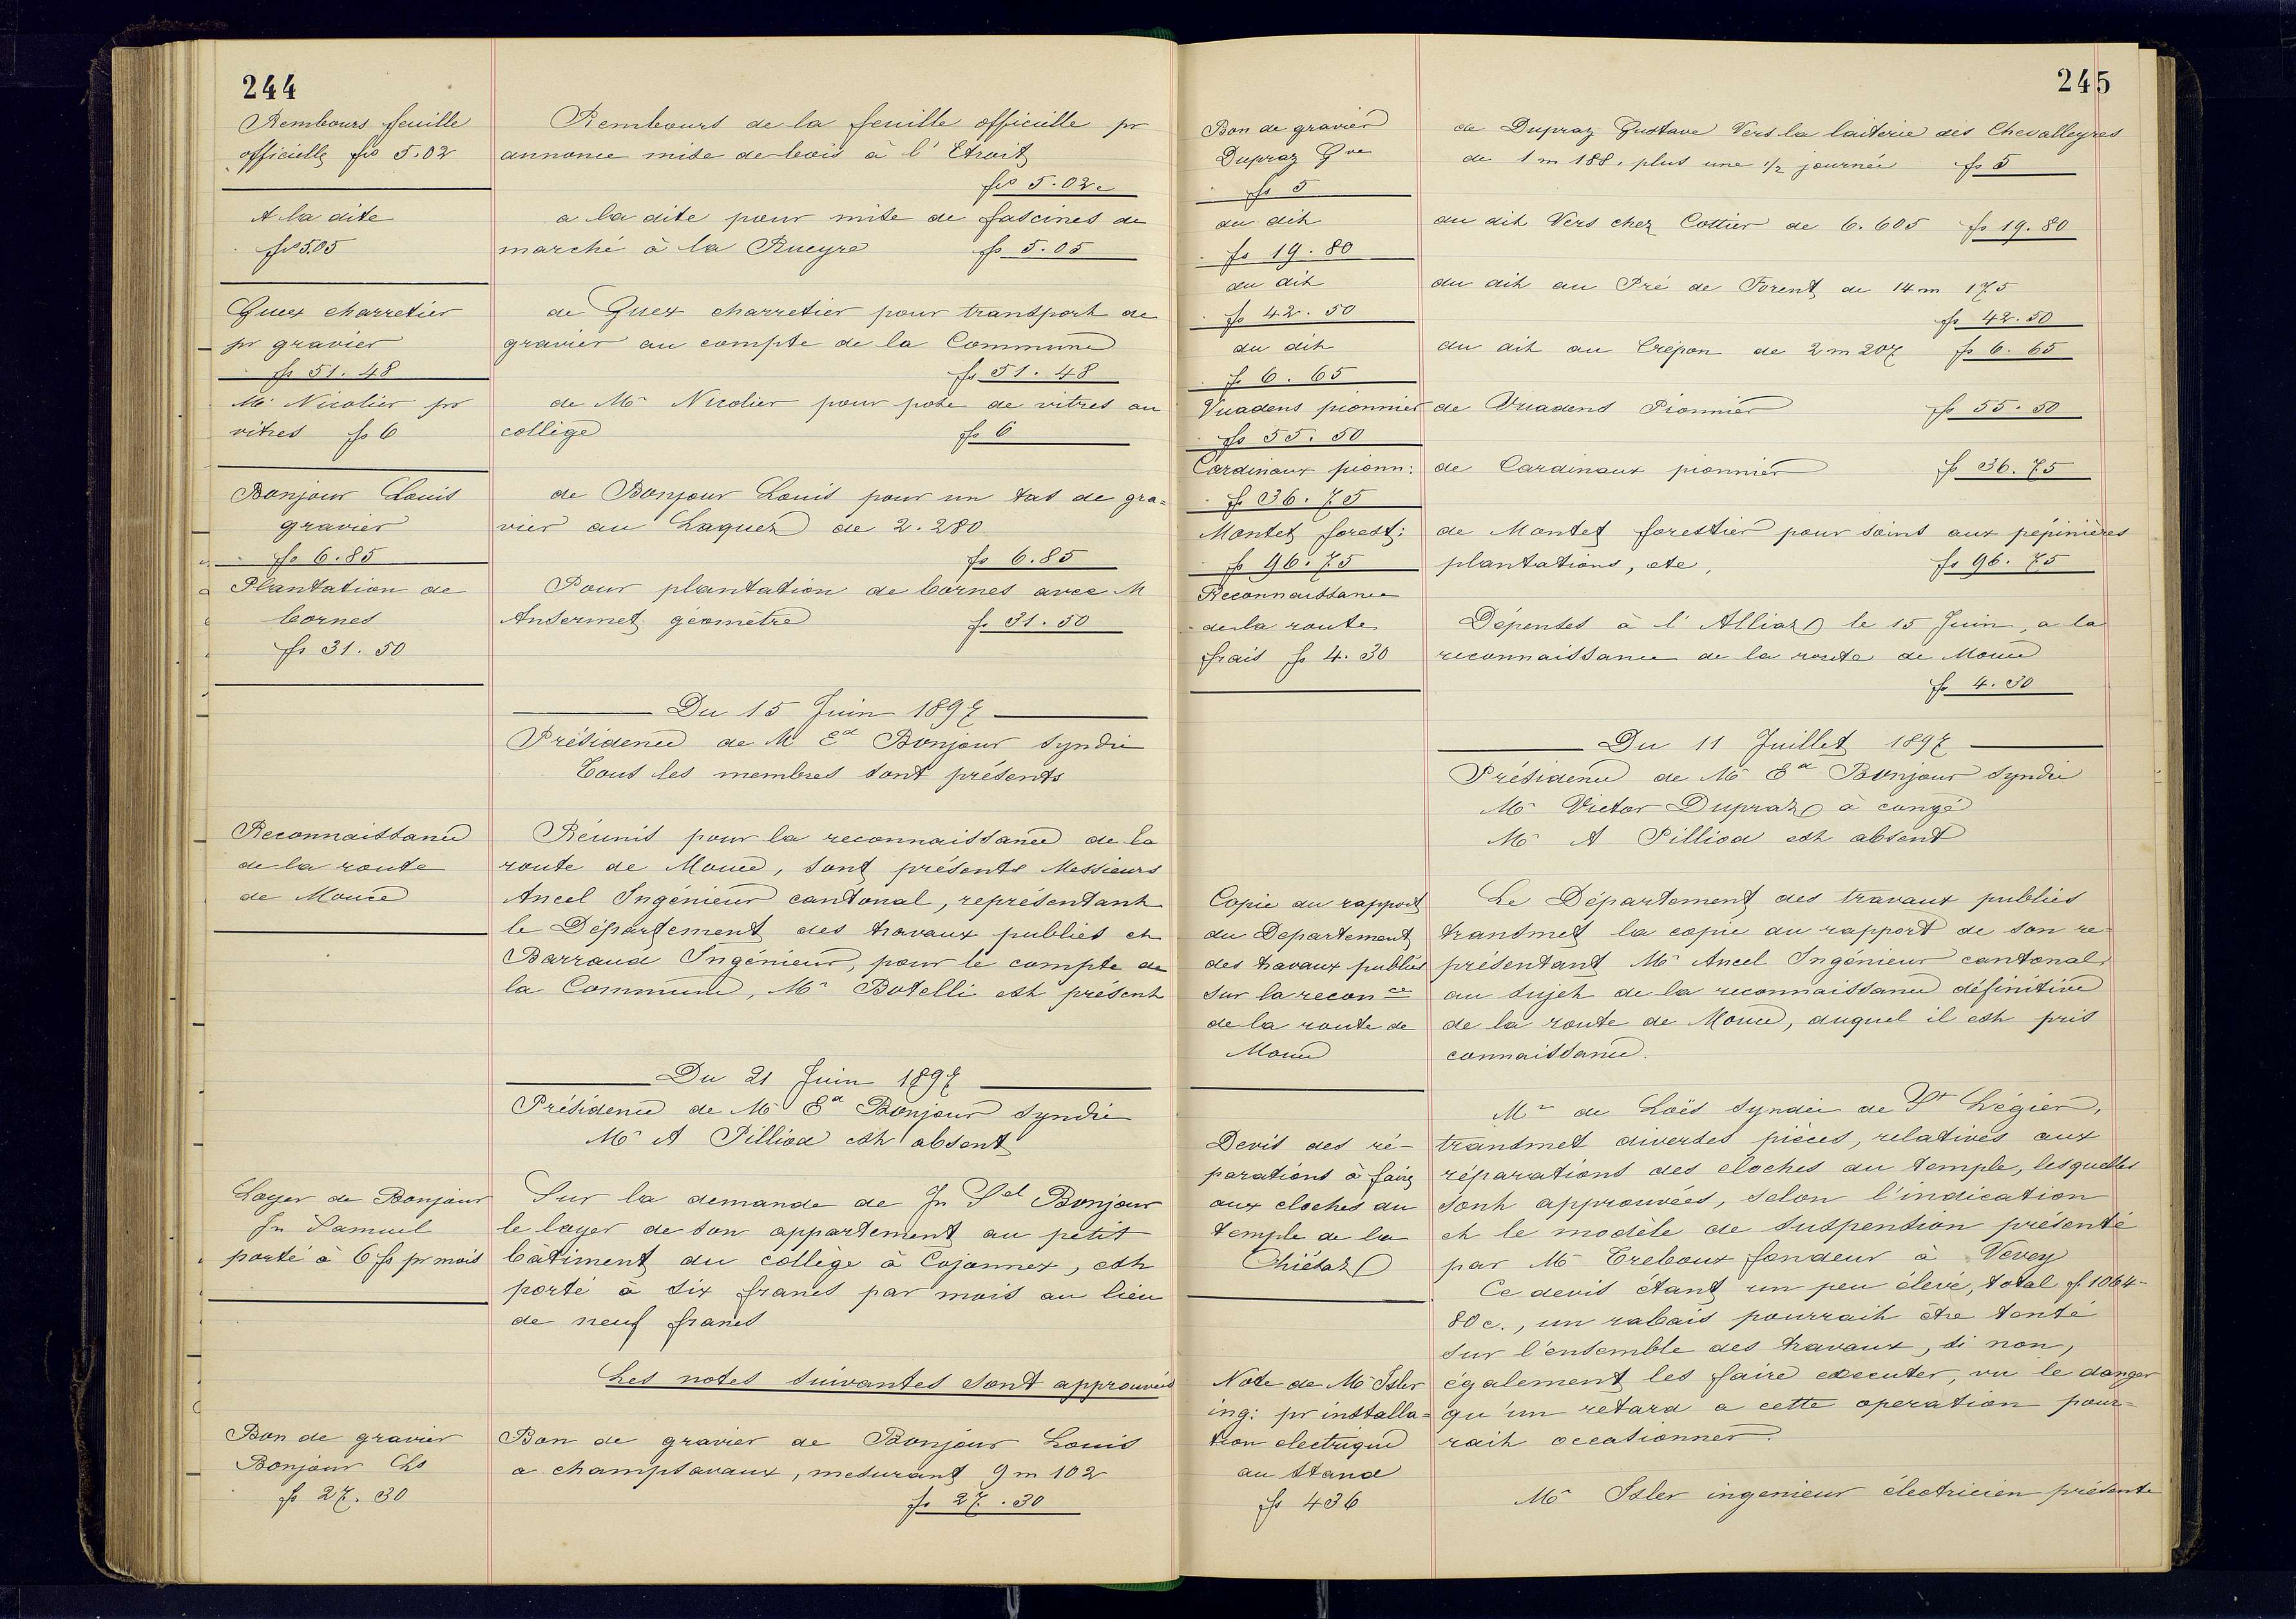 244
Rembours feuille
officielle frs 5.02
A la dite
frs 5.05
Guex charretier
pr gravier
fr 51.48
Mr Nicolier pr
vitres fr 6
Bonjour Louis
gravier
fr 6.85
Plantation de
bornes
fr 31.50
Reconnaissance
de la route
de Mouce
Loyer de Bonjour
Jn Samuel
porté à 6 fr pr mois
Bon de gravier
Bonjour Ls
fr 27.30
Rembours de la feuille officielle pr
annonce mise de bois à l'Etroit
frs 5.02c
a la dite pour mise de fascines de
marché à la Rueyre fr 5.05
de Guex charretier pour transport de
gravier au compte de la Commune
fr 51.48
de Mr Nicolier pour pose de vitres au
collège fr 6
de Bonjour Louis pour un tas de gra=
vier au Laguez de 2.280
fr 6.85
Pour plantation de bornes avec M
Ansermet géomètre fr 31.50
Du 15 Juin 1897
Présidence de M Ed Bonjour syndic
Tous les membres sont présents
Réunis pour la reconnaissance de la
route de Mouce, sont présents Messieurs
Ancel Ingénieur cantonal, représentant
le Département des travaux publics et
Barraud Ingénieur, pour le compte de
la Commune, Mr Botelli est présent
Du 21 Juin 1897
Présidence de Mr Ed Bonjour syndic
Mr A Pilliod est absent
Sur la demande de Jn Sel Bonjour
le loyer de son appartement au petit
bâtiment du collège à Cojonnex, est
porté à six francs par mois au lieu
de neuf francs
Les notes suivantes sont approuvées
Bon de gravier de Bonjour Louis
a champsavaux, mesurant 9 m 102
fr 27.30
245
Bon de gravier
Dupraz Gve
fr 5
du dit
fr 19.80
du dit
fr 42.50
du dit
fr 6.65
Vuadens pionnier
fr 55.50
Cardinaux pionn:
fr 36.75
Montet forest:
fr 96.75
Reconnaissance
de la route
frais fr 4.30
Copie du rapport
du Departement
des travaux publics
sur la reconce
de la route de
Mouce
Devis des ré-
parations à faire
aux cloches du
temple de la
Chiésaz
Note de Mr Isler
ing: pr installa=
tion electrique
au stand
fr 436
de Dupraz Gustave Vers la laiterie des Chevalleyres
de 1 m 188, plus une 1/2 journée fr 5
du dit Vers chez Cottier de 6.605 fr 19.80
du dit au Pré de Forent de 14 m 175
fr 42.50
du dit au Crépon de 2 m 207 fr 6.65
de Vuadens Pionnier fr 55.50
de Cardinaux pionnier fr 36.75
de Montet forestier pour soins aux pepinières
plantations, etc, fr 96.75
Dépenses à l'Alliaz le 15 Juin, a la
reconnaissance de la route de Mouce
fr 4.30
Du 11 Juillet 1897
Présidence de Mr Ed Bonjour syndic
Mr Victor Dupraz à congé
Mr A Pilliod est absent
Le Département des travaux publics
transmet la copie du rapport de son re-
présentant Mr Ancel Ingénieur cantonal
au sujet de la reconnaissance définitive
de la route de Mouce, duquel il est pris
connaissance.
Mr de Loës syndic de St Légier,
transmet diverses pièces, relatives aux
réparations des cloches du temple, lesquelles
sont approuvées, selon l'indication
et le modèle de suspension présenté
par Mr Treboux fondeur à Vevey
Ce devis étant un peu élevé, total fr 1064-
80 c., un rabais pourrait être tenté
sur l'ensemble des travaux, si non,
également les faire executer, vu le danger
qu'un retard a cette operation pour=
rait occasionner.
Mr Isler ingenieur électricien présente